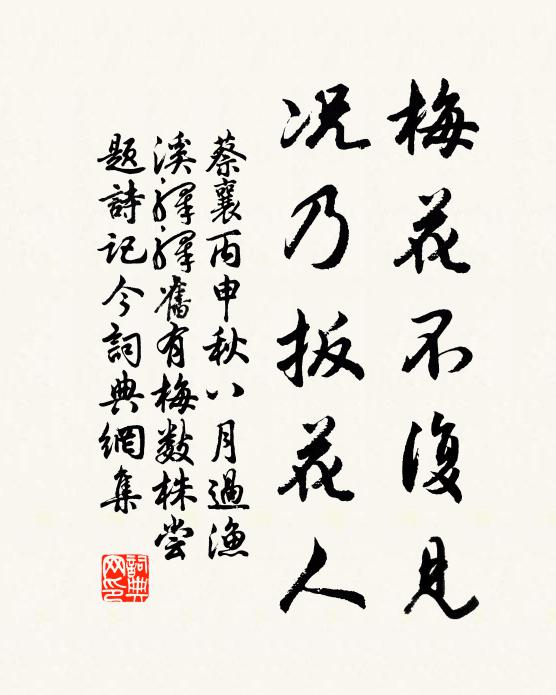 梅花不復見
况乃扳花人
蔡襄丙申秋八月過漁
溪驛驛舊有梅數株嘗
題詩記今詞典網集
詞典网印